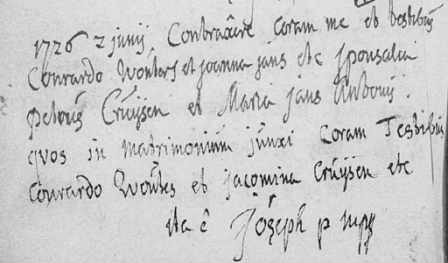 1726 2 junij Contraxere coram me et testibus
Conrardo Wouters et joanna jans etc sponsalia
petrus Cruijsen et Maria jans
quos in matrimonium junxi coram Testibus
Conrardo Woutes et jacomina Cruijsen etc
ita ē Joseph p